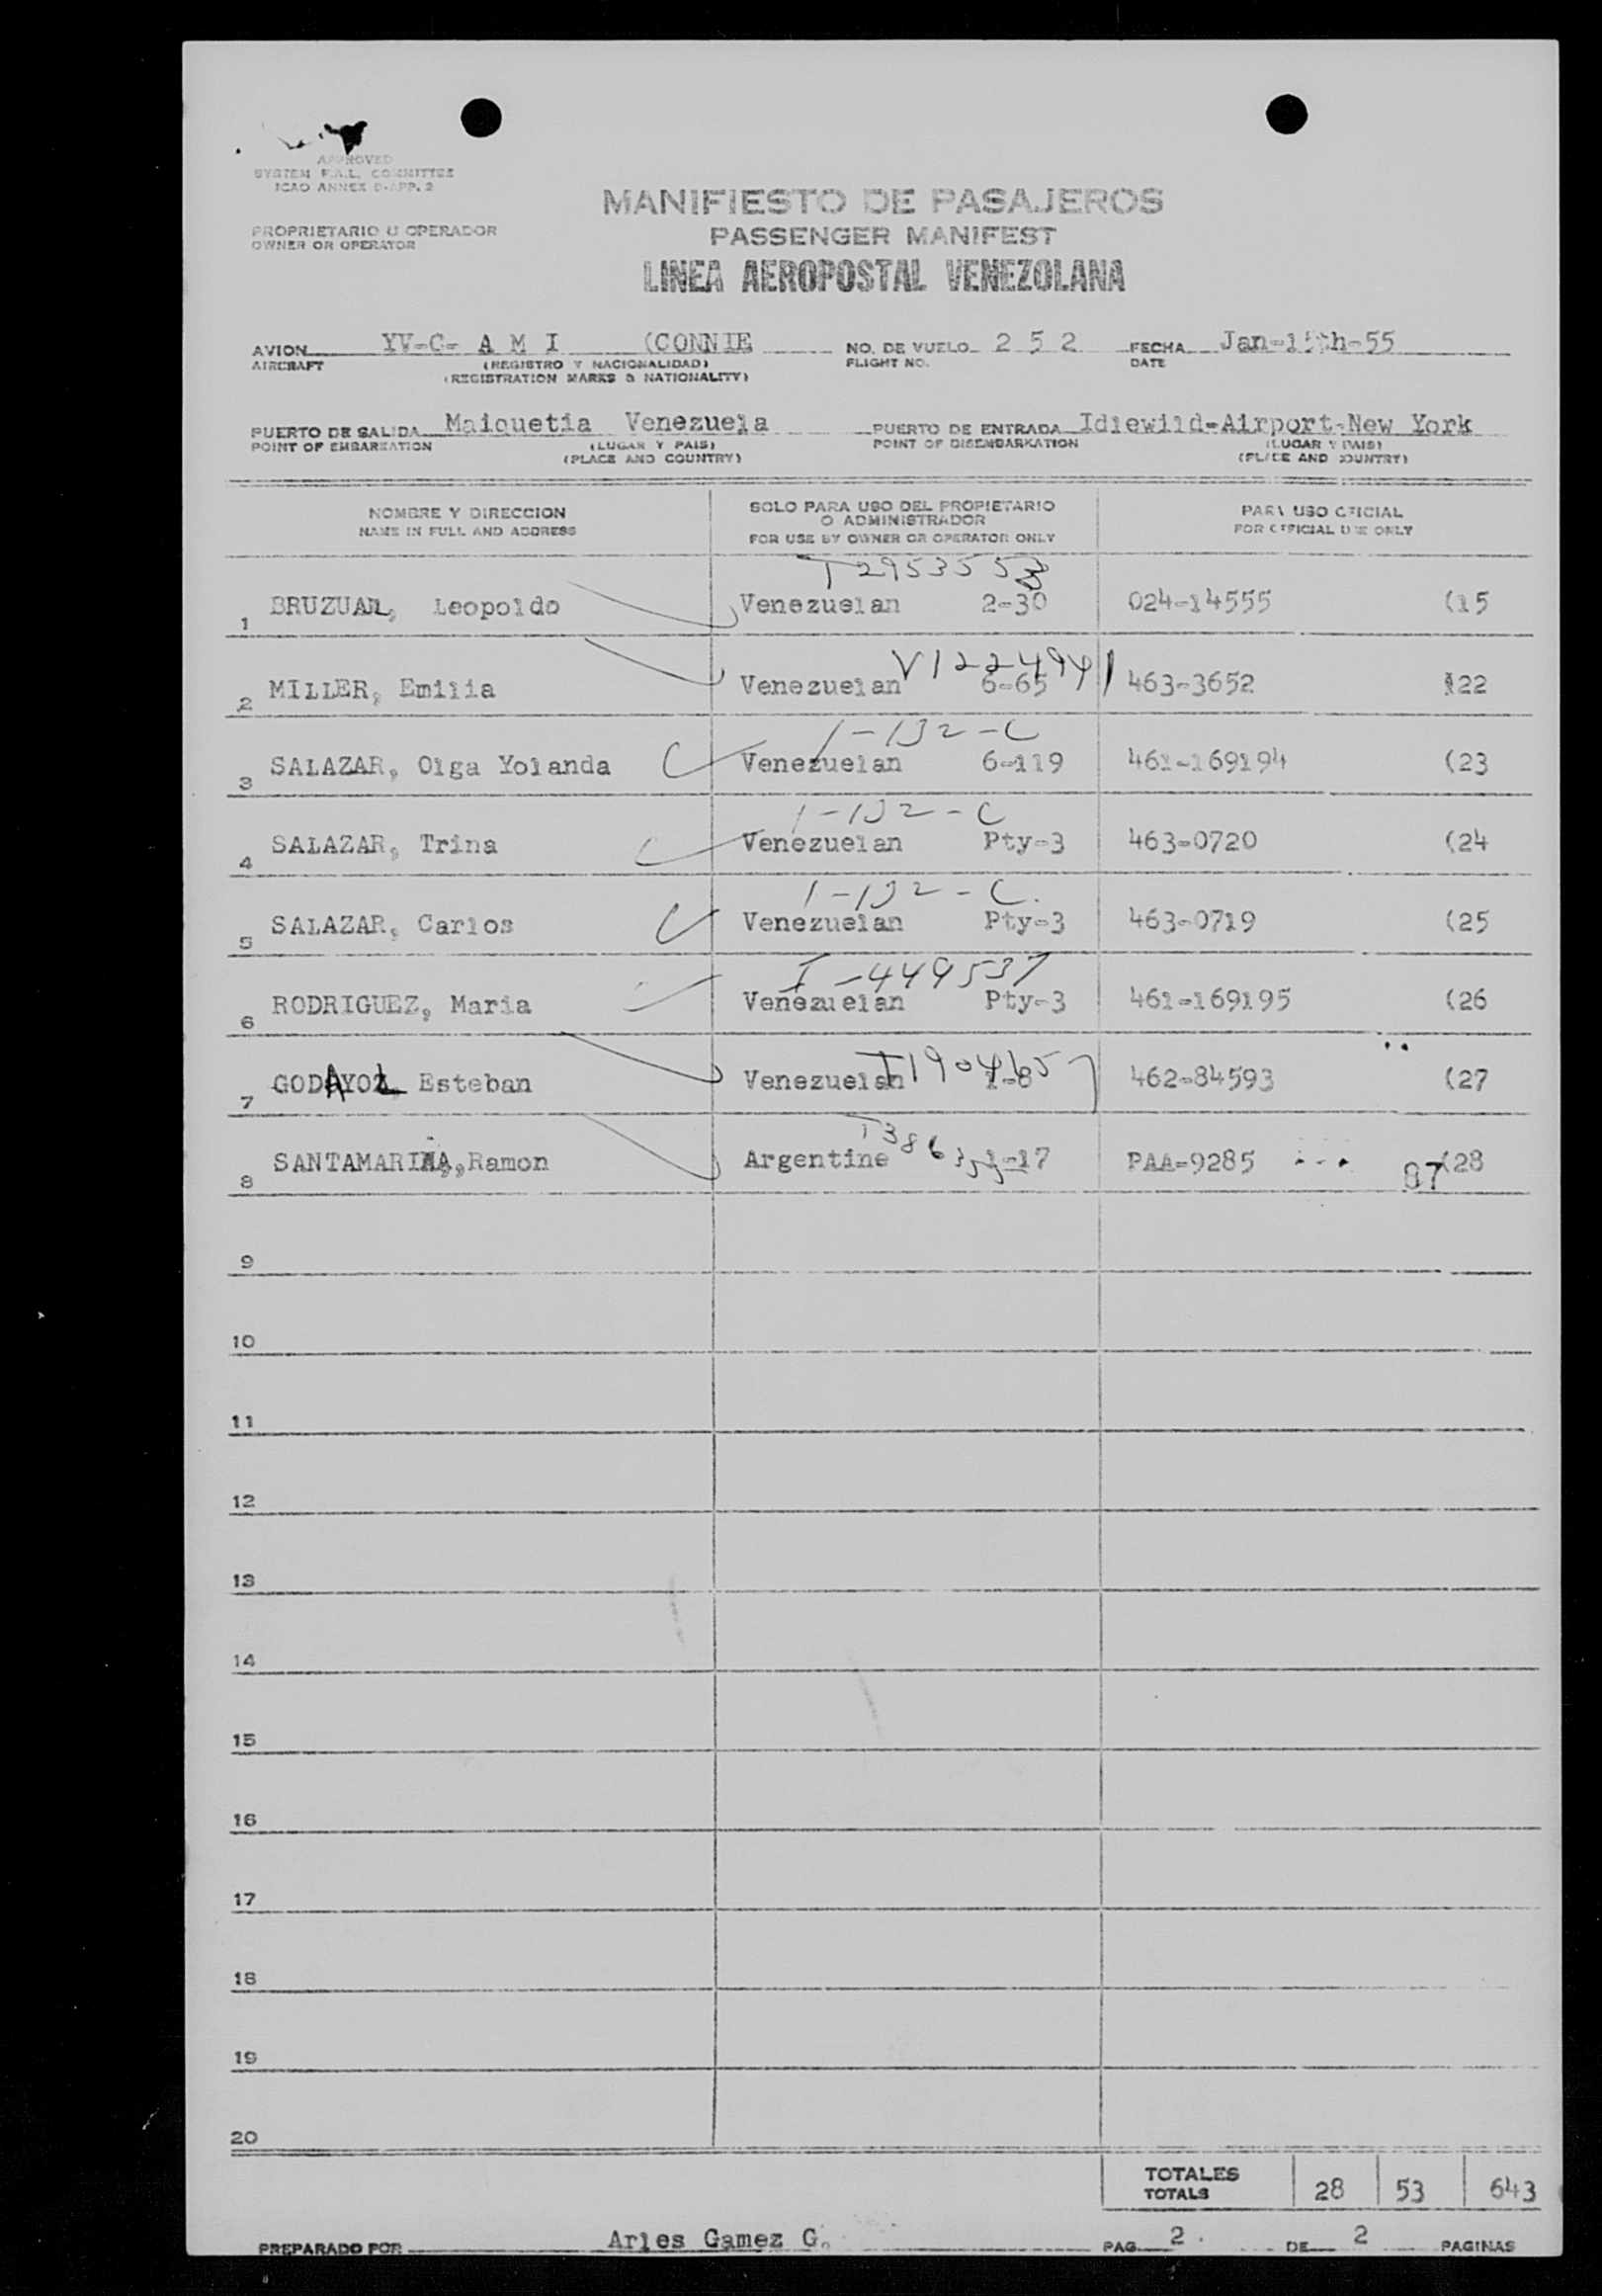 APPROVED
SYSTEM F.A.L. COMMITTEE
ICAO ANNEX 9-APP. 2
PROPRIETARIO U OPERADOR
OWNER OR OPERATOR
MANIFIESTO DE PASAJEROS
PASSENGER MANIFEST
LINEA AEROPOSTAL VENEZOLANA
AVION YV-C- A M I (CONNIE NO. DE VUELO 2 5 2 FECHA Jan-15th-55
AIRCRAFT (REGISTRO Y NACIONALIDAD) FLIGHT NO. DATE
(REGISTRATION MARKS & NATIONALITY)
PUERTO DE SALIDA Maiquetia Venezuela PUERTO DE ENTRADA Idlewild-Airport-New York
POINT OF EMBARKATION (LUGAR Y PAIS) POINT OF DISEMBARKATION (LUGAR Y PAIS)
(PLACE AND COUNTRY) (PLACE AND COUNTRY)
NOMBRE Y DIRECCION
NAME IN FULL AND ADDRESS
SOLO PARA USO DEL PROPIETARIO
O ADMINISTRADOR
FOR USE BY OWNER OR OPERATOR ONLY
PARA USO OFICIAL
FOR OFFICIAL USE ONLY
T2953553
1 BRUZUAL, Leopoldo Venezuelan 2-30 024-14555 (15
V1224941
2 MILLER, Emilia Venezuelan 6-65 463-3652 122
1-132-C
3 SALAZAR, Olga Yolanda Venezuelan 6-119 461-169194 (23
1-132-C
4 SALAZAR, Trina Venezuelan Pty-3 463-0720 (24
1-132-C.
5 SALAZAR, Carlos Venezuelan Pty-3 463-0719 (25
I-449537
6 RODRIGUEZ, Maria Venezuelan Pty-3 461-169195 (26
7 GODAYOL Esteban Venezuelan 462-84593 (27
8 SANTAMARINA, Ramon Argentine 1-17 PAA-9285 87 (28
9
10
11
12
13
14
15
16
17
18
19
20
TOTALES
TOTALS 28 53 643
PREPARADO POR Arles Gamez G. PAG. 2 DE 2 PAGINAS